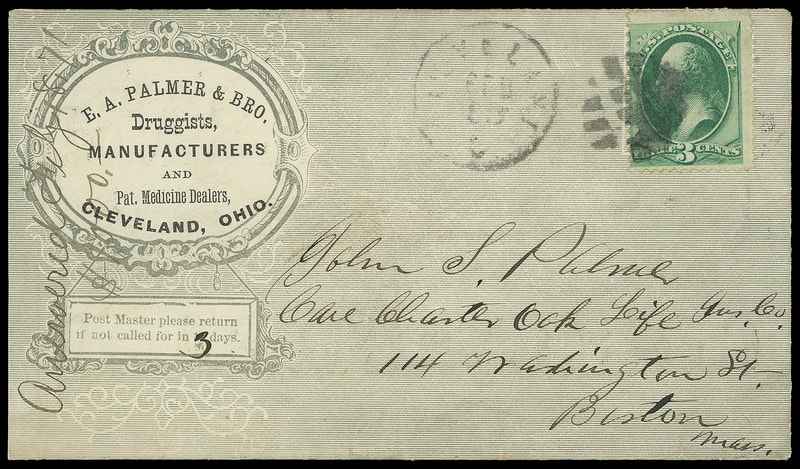 E. A. PALMER & BRO.
Druggists,
MANUFACTURERS
AND
Pat. Medicine Dealers,
CLEVELAND, OHIO.
Post Master please return
if not called for in 3 days.
Answered
1871
U.S. POSTAGE
THREE 3 CENTS
John S. Palmer
Care Charter Oak Life Ins. Co.
114 Washington St.
Boston
Mass.